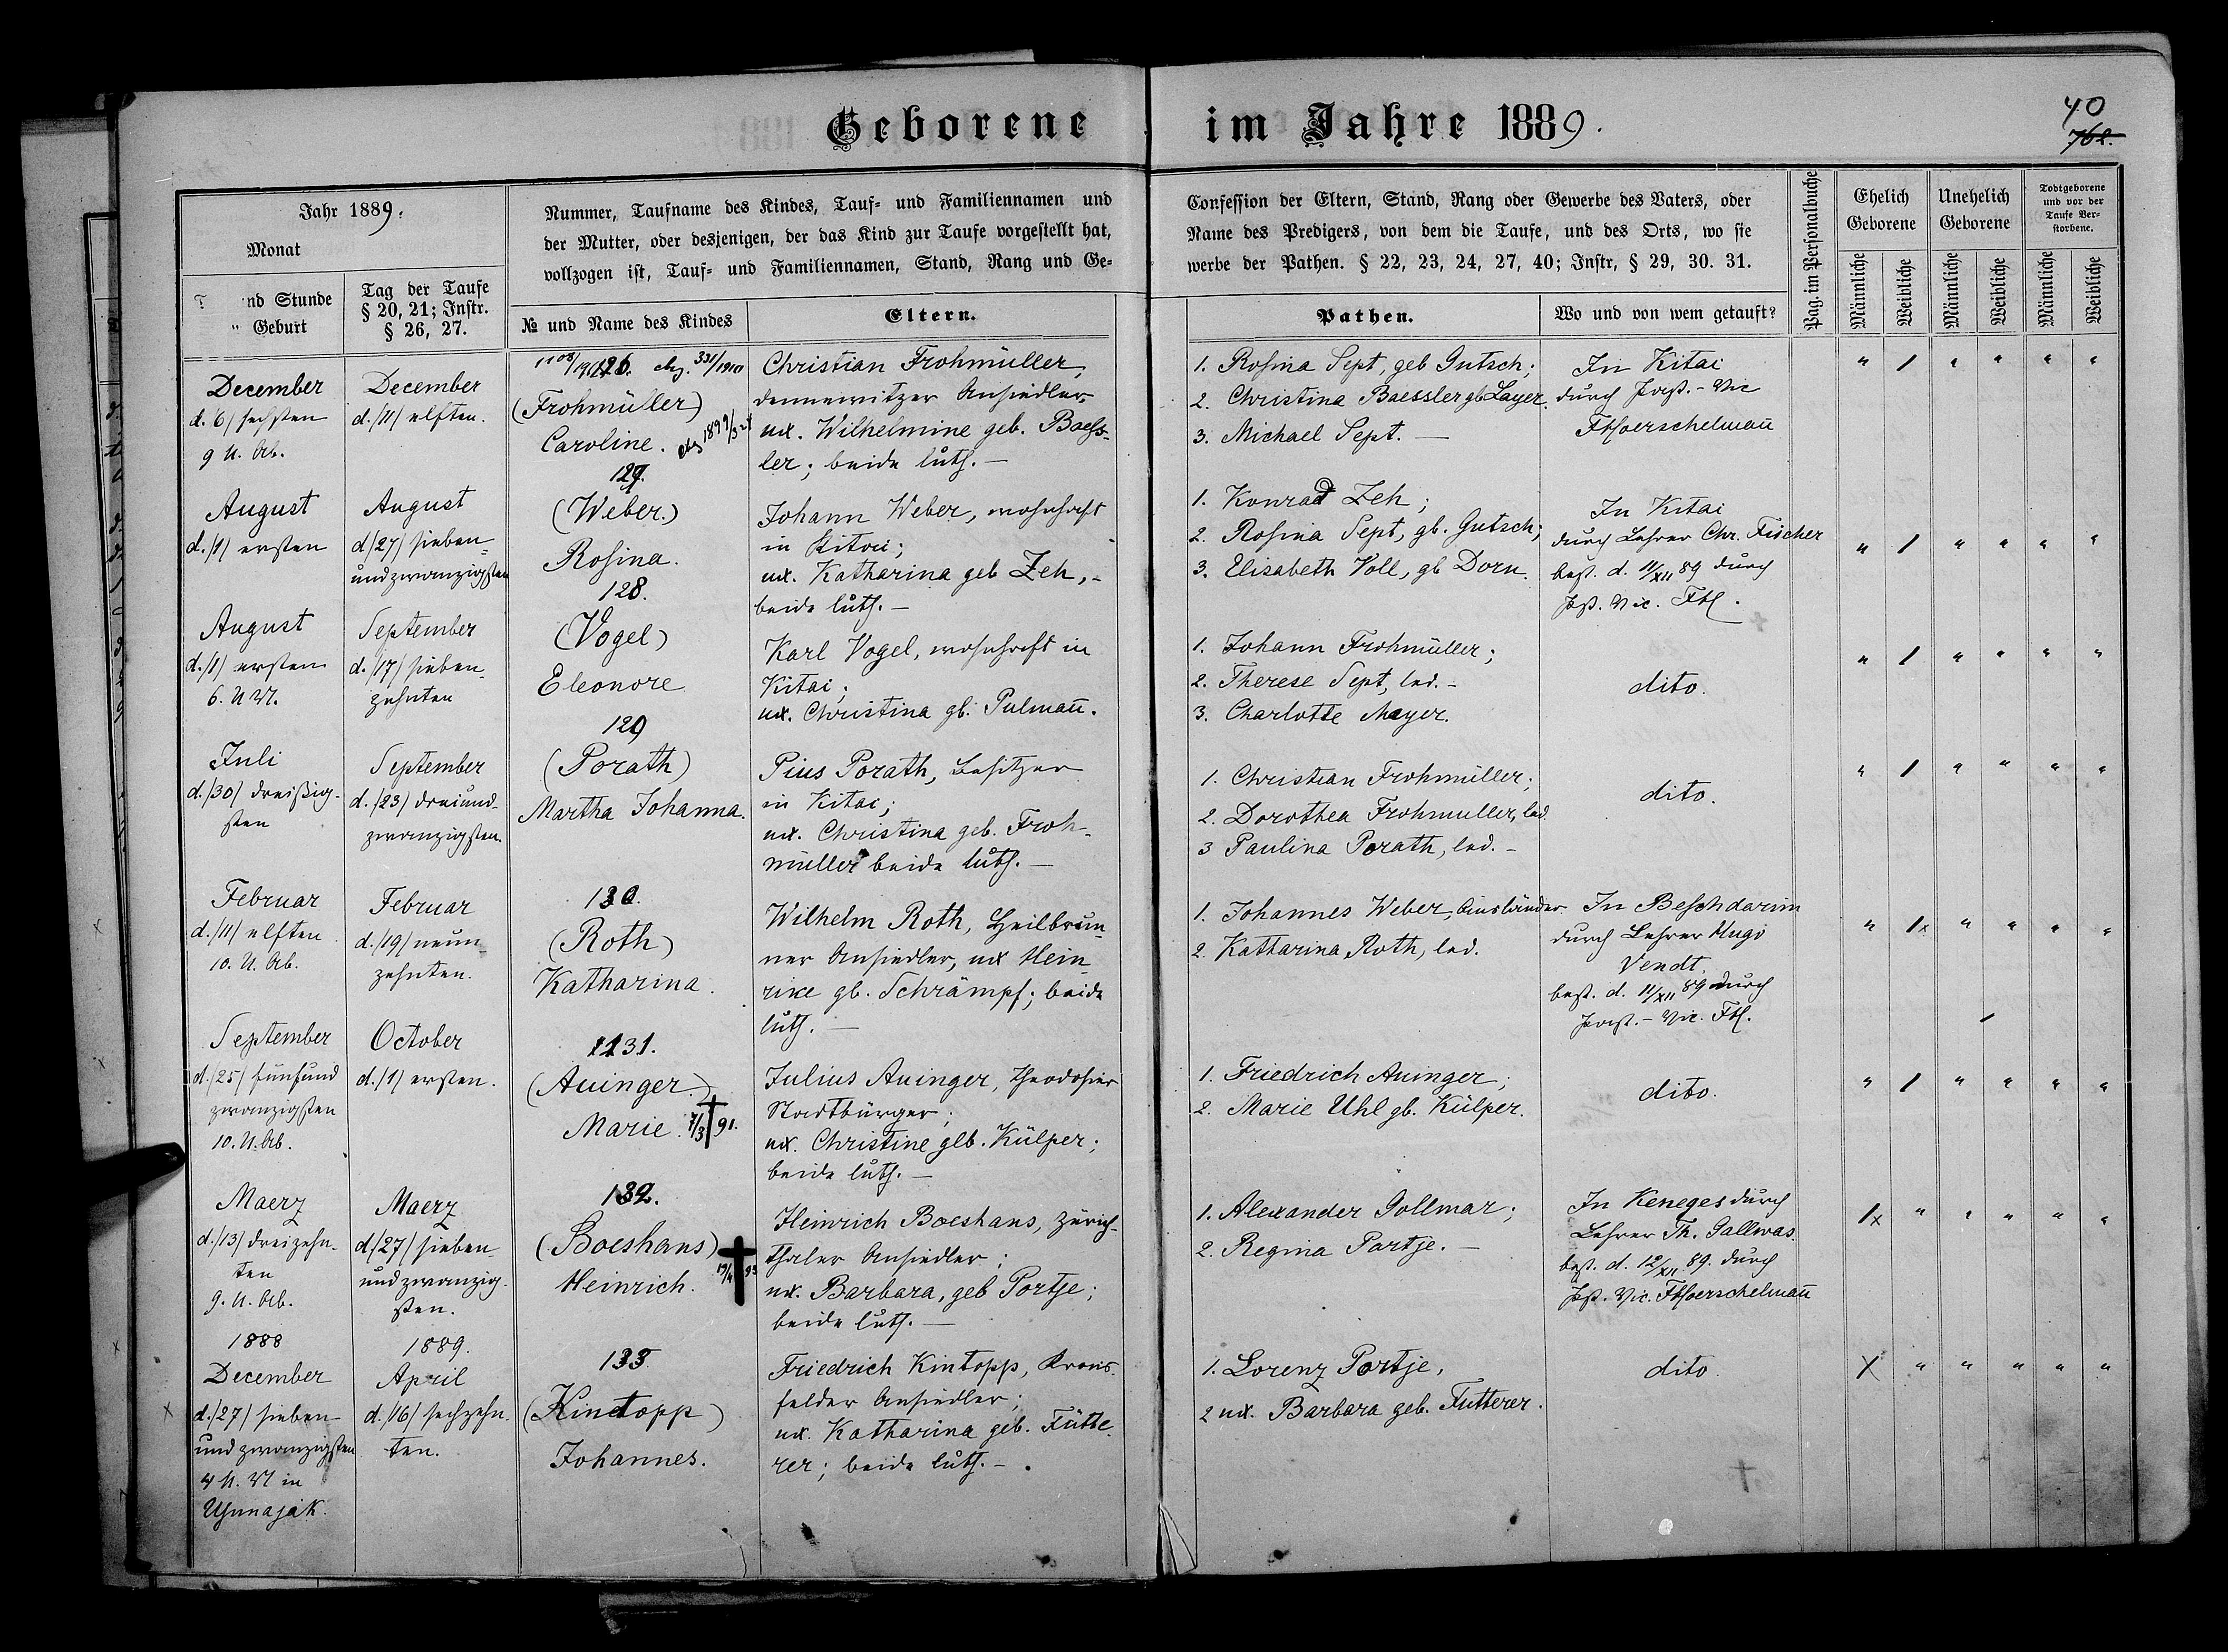 Geborene im Jahre 1889.
40
762.
Jahr 1889.
Monat
nd Stunde
" Geburt
Tag der Taufe
§ 20, 21; Instr.
§ 26, 27.
Nummer, Taufname des Kindes, Tauf- und Familiennamen und
der Mutter, oder desjenigen, der das Kind zur Taufe vorgestellt hat,
vollzogen ist, Tauf- und Familiennamen, Stand, Rang und Ge-
№ und Name des Kindes
Eltern.
Confession der Eltern, Stand, Rang oder Gewerbe des Vaters, oder
Name des Predigers, von dem die Taufe, und des Orts, wo sie
werbe der Pathen. § 22, 23, 24, 27, 40; Instr, § 29, 30. 31.
Pathen.
Wo und von wem getauft?
Pag. im Personalbuche
Ehelich
Geborene
Unehelich
Geborene
Todtgeborene
und vor der
Taufe Ver-
storbene.
Männliche
Weibliche
Männliche
Weibliche
Männliche
Weibliche
December
d. /6/ sechsten
9 U. Ab.
December
d. /11/ elften.
126. 331/1910
(Frohmüller)
Caroline.
Christian Frohmüller,
dennewitzer Ansiedler,
ux. Wilhelmine geb. Baess-
ler; beide luth. —
1. Rosina Sept, geb Gutsch;
2. Christina Baessler gb Layer.
3. Michael Sept. —
In Kitai
durch Past. - Vic
FHoerschelmañ
" 1 " " " "
August
d. /1/ ersten
August
d /27/ sieben-
undzwanzigsten
127.
(Weber.)
Rosina.
Johann Weber, wohnhaft
in Kitai;
ux. Katharina geb Zeh, -
beide luth. —
1. Konrad Zeh;
2. Rosina Sept, gb. Gutsch;
3. Elisabeth Voll, gb Dorn.
In Kitai
durch Lehrer Chr. Fischer
best. d. 11/XII 89 durch
Past. Vic. FH.
" 1 " " " "
August
d. /1/ ersten
6. U M.
September
d. /17/ sieben-
zehnten
128.
(Vogel)
Eleonore
Karl Vogel, wohnhaft in
Kitai;
ux. Christina gb. Pulmañ.
1. Johann Frohmüller;
2. Therese Sept, led. -
3. Charlotte Mayer.
dito.
" 1 " " " "
Juli
d. /30/ dreißig-
sten
September
d. /23/ dreiund-
zwanzigsten.
129
(Porath)
Martha Johanna.
Pius Porath, Besitzer
in Kitai;
ux. Christina geb. Froh-
müller beide luth. —
1. Christian Frohmüller;
2. Dorothea Frohmuller, led.
3 Paulina Porath, led. -
dito.
" 1 " " " "
Februar
d. /11/ elften
10. U. Ab.
Februar
d. /19/ neun-
zehnten.
130.
(Roth)
Katharina.
Wilhelm Roth, Heilbrun-
ner Ansiedler, ux Hein-
rike gb. Schrämpf; beide
luth. —
1. Johannes Weber, Ausländer.
2. Katharina Roth, led.
In Beschdarim
durch Lehrer Hugo
Vendt.
best. d. 11/XII 89 durch
Past. - Vic. FH.
" 1x " " " "
September
d. /25/ fünfund
zwanzigsten
10. U. Ab.
October
d. /1/ ersten.
131.
(Auinger.)
Marie. 7/3 † 91.
Julius Auinger, Theodosier
Stadtbürger;
ux. Christine geb. Külper;
beide luth. —
1. Friedrich Auinger;
2. Marie Uhl gb. Külper.
dito.
" 1 " " " "
Maerz
d. /13/ dreizehn-
ten
9. U. Ab.
Maerz
d. /27/ sieben-
undzwanzig-
sten.
132.
(Boeshans)
Heinrich. 19/4 † 93
Heinrich Boeshans, Zürich-
thaler Ansiedler;
ux. Barbara, geb Portje;
beide luth. —
1. Alexander Gollmar;
2. Regina Portje. —
In Keneges durch
Lehrer Th. Gallwas.
best. d. 12/XII 89. durch
Past. Vic. FHoerschelmañ
1x " " " " "
1888
December
d. /27/ sieben-
und zwanzigsten
4 U. M in
1889.
April
d. /16/ sechzehn-
ten.
133.
(Kintopp)
Johannes.
Friedrich Kintopp, Krons-
felder Ansiedler;
ux. Katharina geb. Fütte-
rer; beide luth. —
1. Lorenz Portje,
2 ux. Barbara geb. Futterer.
dito.
X " " " " "